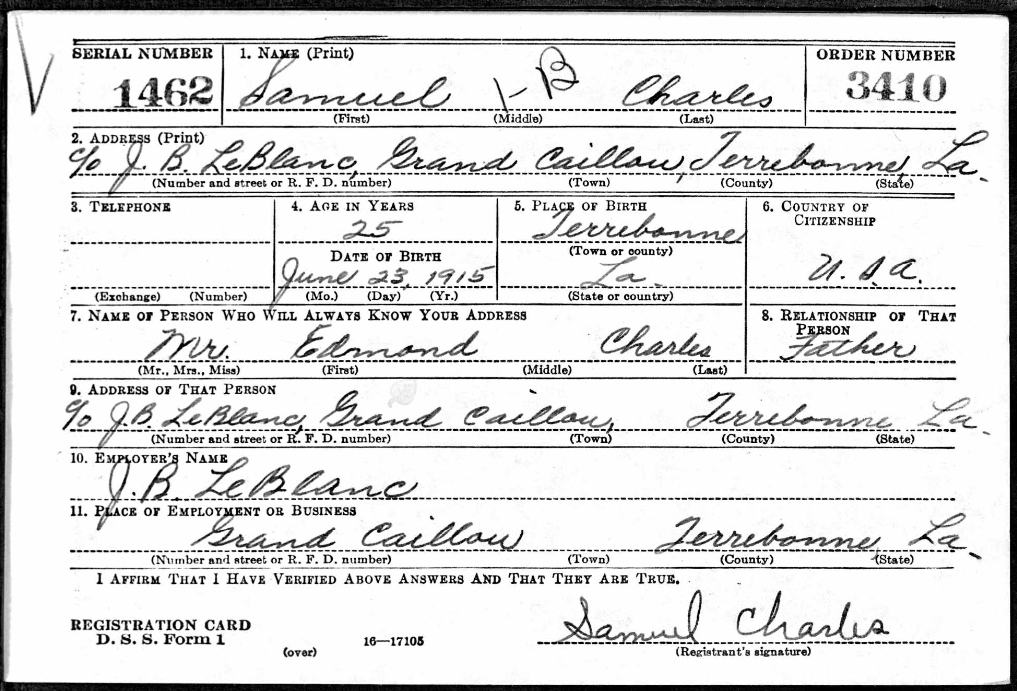 SERIAL NUMBER 1. NAME (Print) ORDER NUMBER
1462 Samuel 1-B Charles 3410
(First) (Middle) (Last)
2. ADDRESS (Print)
c/o J. B. LeBlanc, Grand Caillou, Terrebonne, La.
(Number and street or R. F. D. number) (Town) (County) (State)
3. TELEPHONE 4. AGE IN YEARS 5. PLACE OF BIRTH 6. COUNTRY OF CITIZENSHIP
25 Terrebonne
DATE OF BIRTH (Town or county)
June 23, 1915 La. U.S.A.
(Exchange) (Number) (Mo.) (Day) (Yr.) (State or country)
7. NAME OF PERSON WHO WILL ALWAYS KNOW YOUR ADDRESS 8. RELATIONSHIP OF THAT PERSON
Mr. Edmond Charles Father
(Mr., Mrs., Miss) (First) (Middle) (Last)
9. ADDRESS OF THAT PERSON
c/o J.B. LeBlanc, Grand Caillou, Terrebonne La.
(Number and street or R. F. D. number) (Town) (County) (State)
10. EMPLOYER'S NAME
J. B. LeBlanc
11. PLACE OF EMPLOYMENT OR BUSINESS
Grand Caillou Terrebonne, La.
(Number and street or R. F. D. number) (Town) (County) (State)
I AFFIRM THAT I HAVE VERIFIED ABOVE ANSWERS AND THAT THEY ARE TRUE.
REGISTRATION CARD
D. S. S. Form 1 16—17105 Samuel Charles
(over) (Registrant's signature)